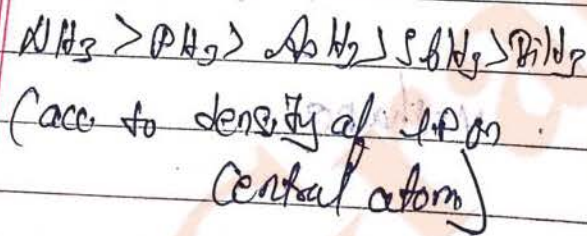 NH3 > PH3 > AsH3 > SbH3 > BiH3
(acc to density of l.p on
central atom)